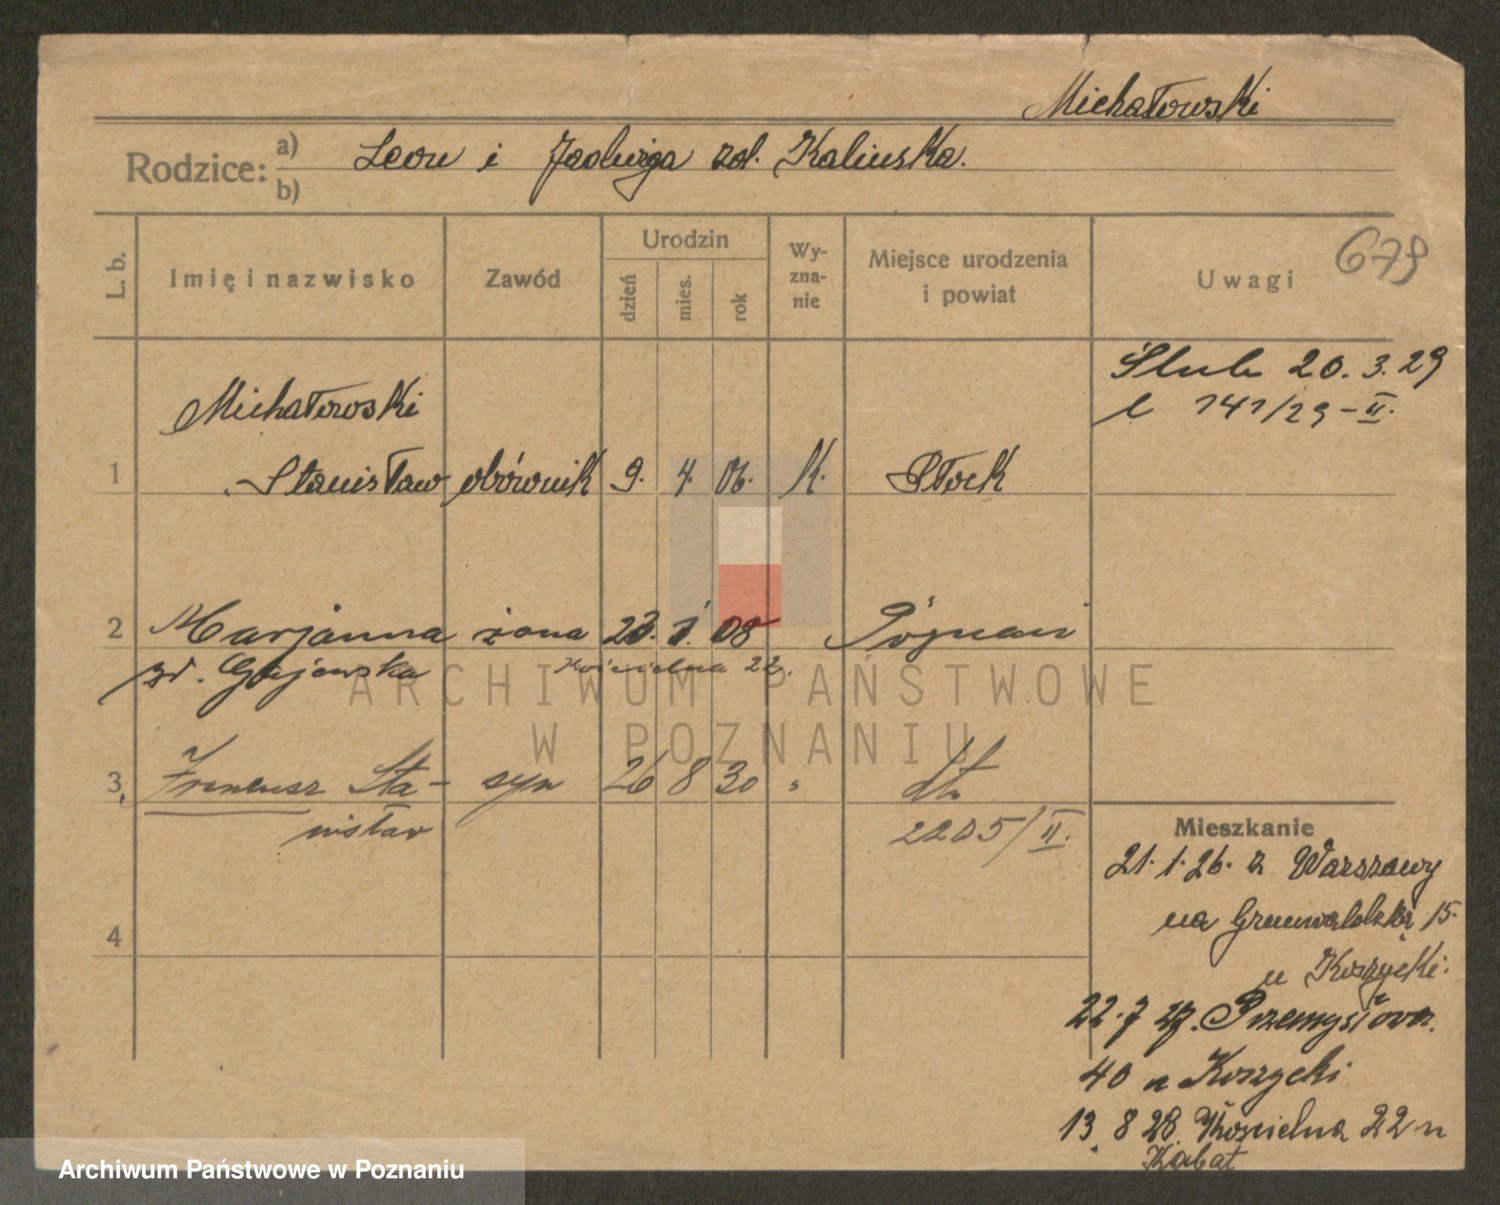 Michałowski
Rodzice: a) Leon i Jadwiga zd. Kalinska.
b)
L. b. Imię i nazwisko Zawód Urodzin dzień mies. rok Wyznanie Miejsce urodzenia i powiat Uwagi 679
Ślub 20. 3. 29
l 141/29-II.
Michałowski
1 Stanisław obównik 9. 4. 06. K. Płock
2 Marjanna żona 23. 1. 08 Poznań
zd. Gajewska Kościelna 22.
3 Ireneusz Sta- syn 26 8 30 " dto
nisław 2205/II.
4
Mieszkanie
21. 1. 26. z Warszawy
na Grunwaldzką 15.
u Koszycki.
22. 7 27. Przemysłowa.
40 u Koszycki
13. 8 28. Kościelna 22 u
Kabat
ARCHIWUM PAŃSTWOWE
W POZNANIU
Archiwum Państwowe w Poznaniu